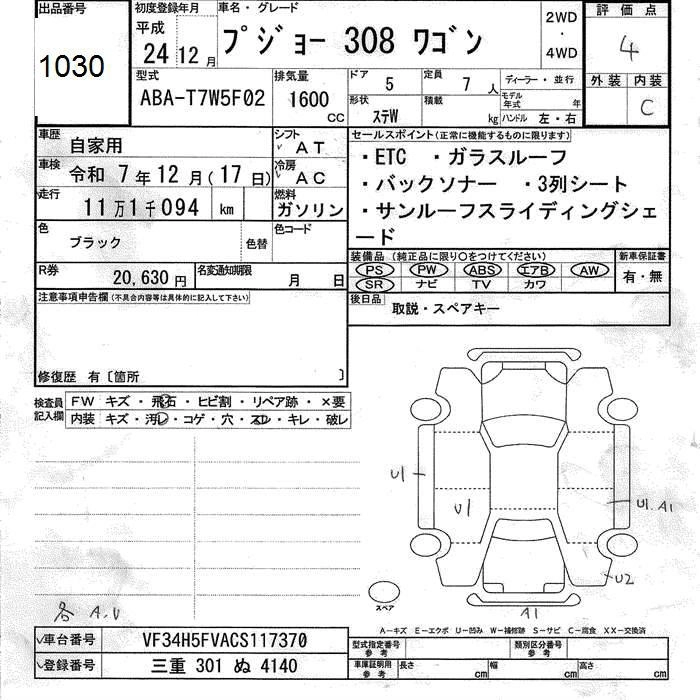 出品番号
1030
初度登録年月
平成
24 12月
車名・グレード
プジョー 308 ワゴン
2WD
・
4WD
評価点
4
外装 内装
C
型式
ABA-T7W5F02
排気量
1600
CC
ドア
5
定員
7 人
形状
ステW
積載
kg
ディーラー・並行
モデル年式 年
ハンドル 左・右
車歴
自家用
シフト
AT
車検
令和 7年12月(17日)
冷房
AC
走行
11万1千094 km
燃料
ガソリン
色
ブラック
色替
色コード
R券
20,630円
名変通知期限
月 日
セールスポイント(正常に機能するものに限ります)
・ETC ・ガラスルーフ
・バックソナー ・3列シート
・サンルーフスライディングシェ
ード
装備品 (純正品に限り○をつけてください)
PS PW ABS エアB AW
SR ナビ TV カワ
新車保証書
有・無
後日品
取説・スペアキー
注意事項申告欄(不具合内容等は具体的に記入して下さい)
修復歴 有〔箇所 〕
検査員
記入欄
FW キズ・飛石・ヒビ割・リペア跡・×要
内装 キズ・汚レ・コゲ・穴・スレ・キレ・破レ
U1
U1
U1.A1
U2
A1
スペア
各 A.U
A-キズ E-エクボ U-凹み W-補修跡 S-サビ C-腐食 XX-交換済
車台番号
VF34H5FVACS117370
登録番号
三重 301 ぬ 4140
型式指定番号
参考
類別区分番号
参考
車庫証明用
参考
長さ cm
幅 cm
高さ cm